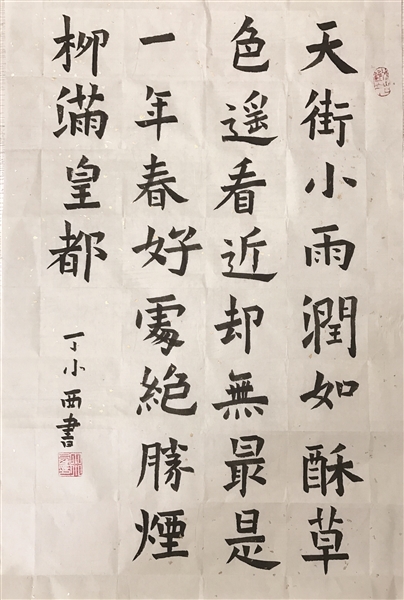 天街小雨潤如酥草
色遥看近却無最是
一年春好處絶勝煙
柳滿皇都
丁小西書